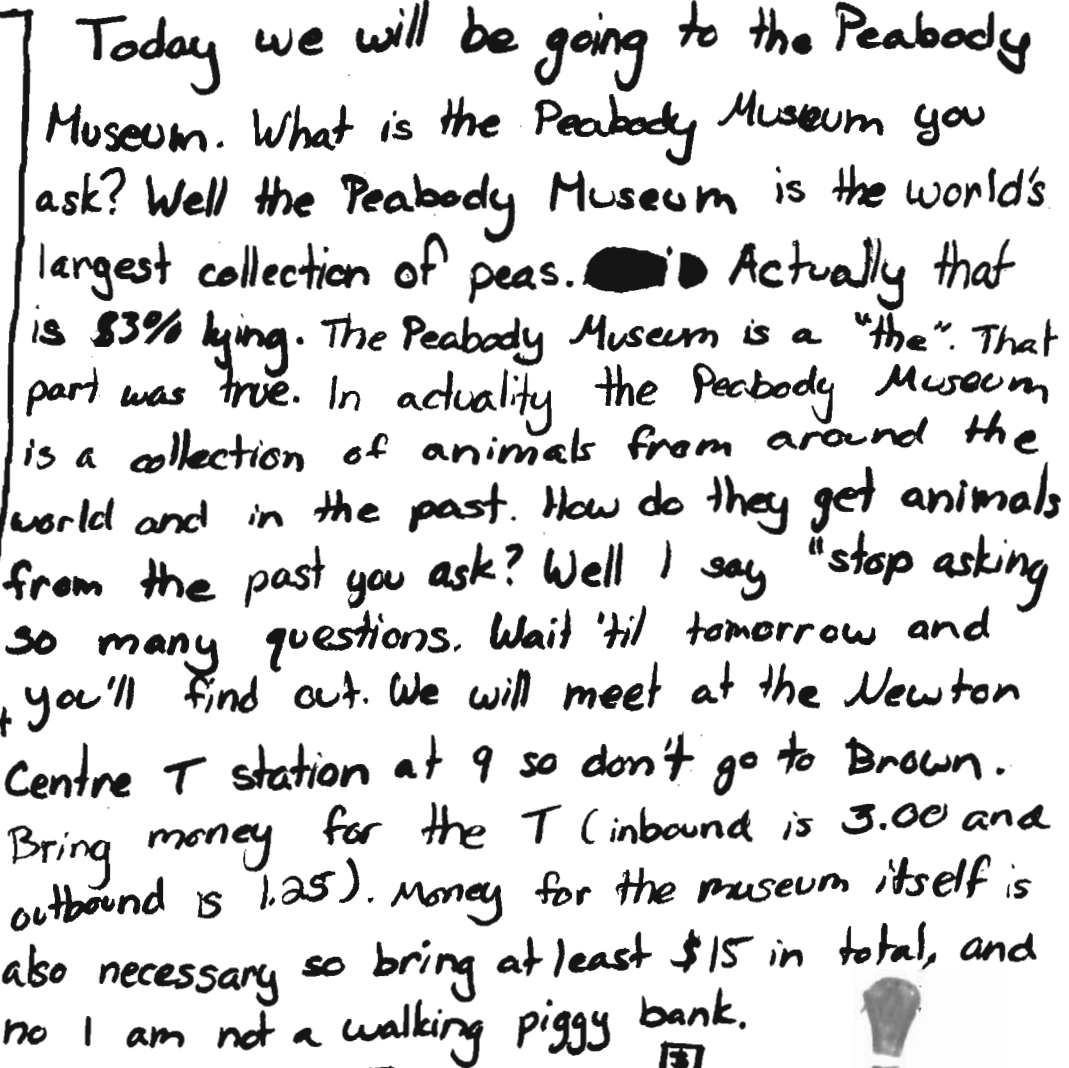 Today we will be going to the Peabody
Museum. What is the Peabody Museum you
ask? Well the Peabody Museum is the world's
largest collection of peas. Actually that
is 83% lying. The Peabody Museum is a "the". That
part was true. In actuality the Peabody Museum
is a collection of animals from around the
world and in the past. How do they get animals
from the past you ask? Well I say "stop asking
so many questions. Wait 'til tomorrow and
you'll find out. We will meet at the Newton
Centre T station at 9 so don't go to Brown.
Bring money for the T (inbound is 3.00 and
outbound is 1.25). Money for the museum itself is
also necessary so bring at least $15 in total, and
no I am not a walking piggy bank.
$